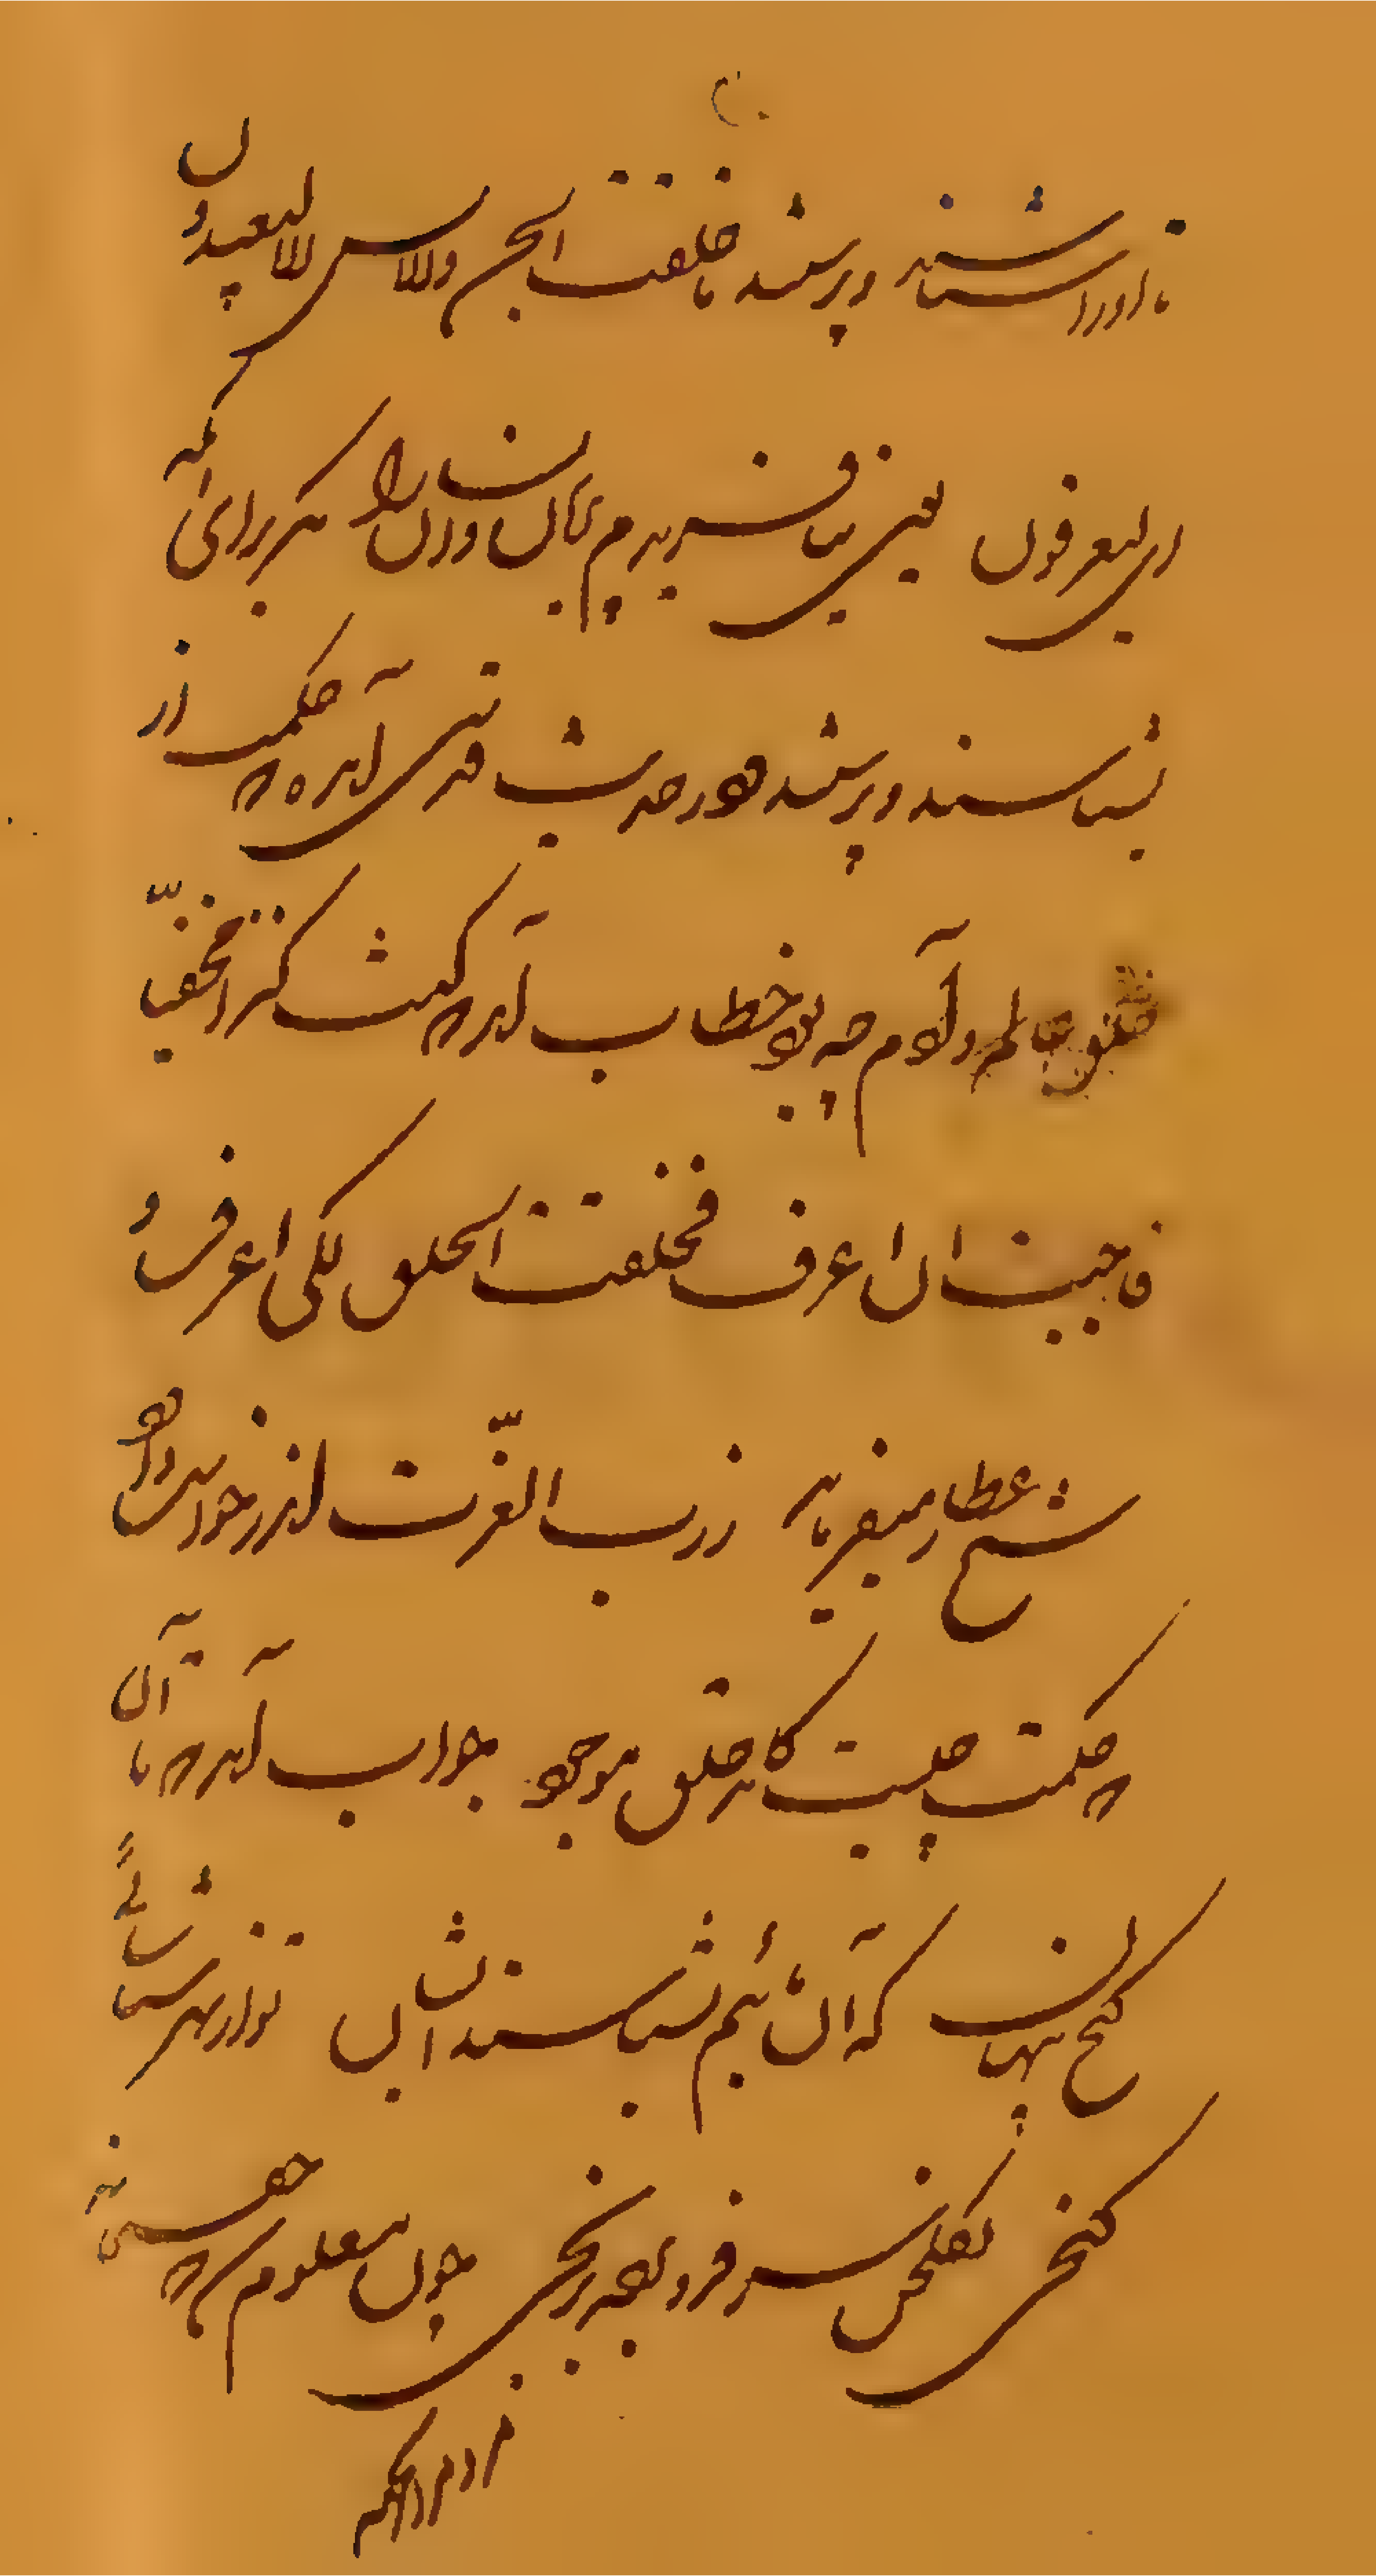 تا او را شناسند و پرستند ما خلقت الجن والانس الا لیعبدون
ای لیعرفون یعنی نیافریدم پریان و آدمیان را مگر برای آنکه
بشناسند و پرستند و در حدیث قدسی آمده که حکمت از
خلق عالم و آدم چه بود خطاب آمد که کنت کنزا مخفیّا
فاحببت ان اعرف فخلقت الخلق لکی اعرف و
شیخ عطار میفرماید ز رب العزّت اندر خواست داود
که حکمت چیست کامد خلق موجود جواب آمد که تا آن
گنج پنهان که آن مائیم بشناسند ایشان تو از بهر شناسائی
گنجی بگلخن سر فرود آور برنجی چون معلوم شد که حق سبحانه
مردم را آنکه